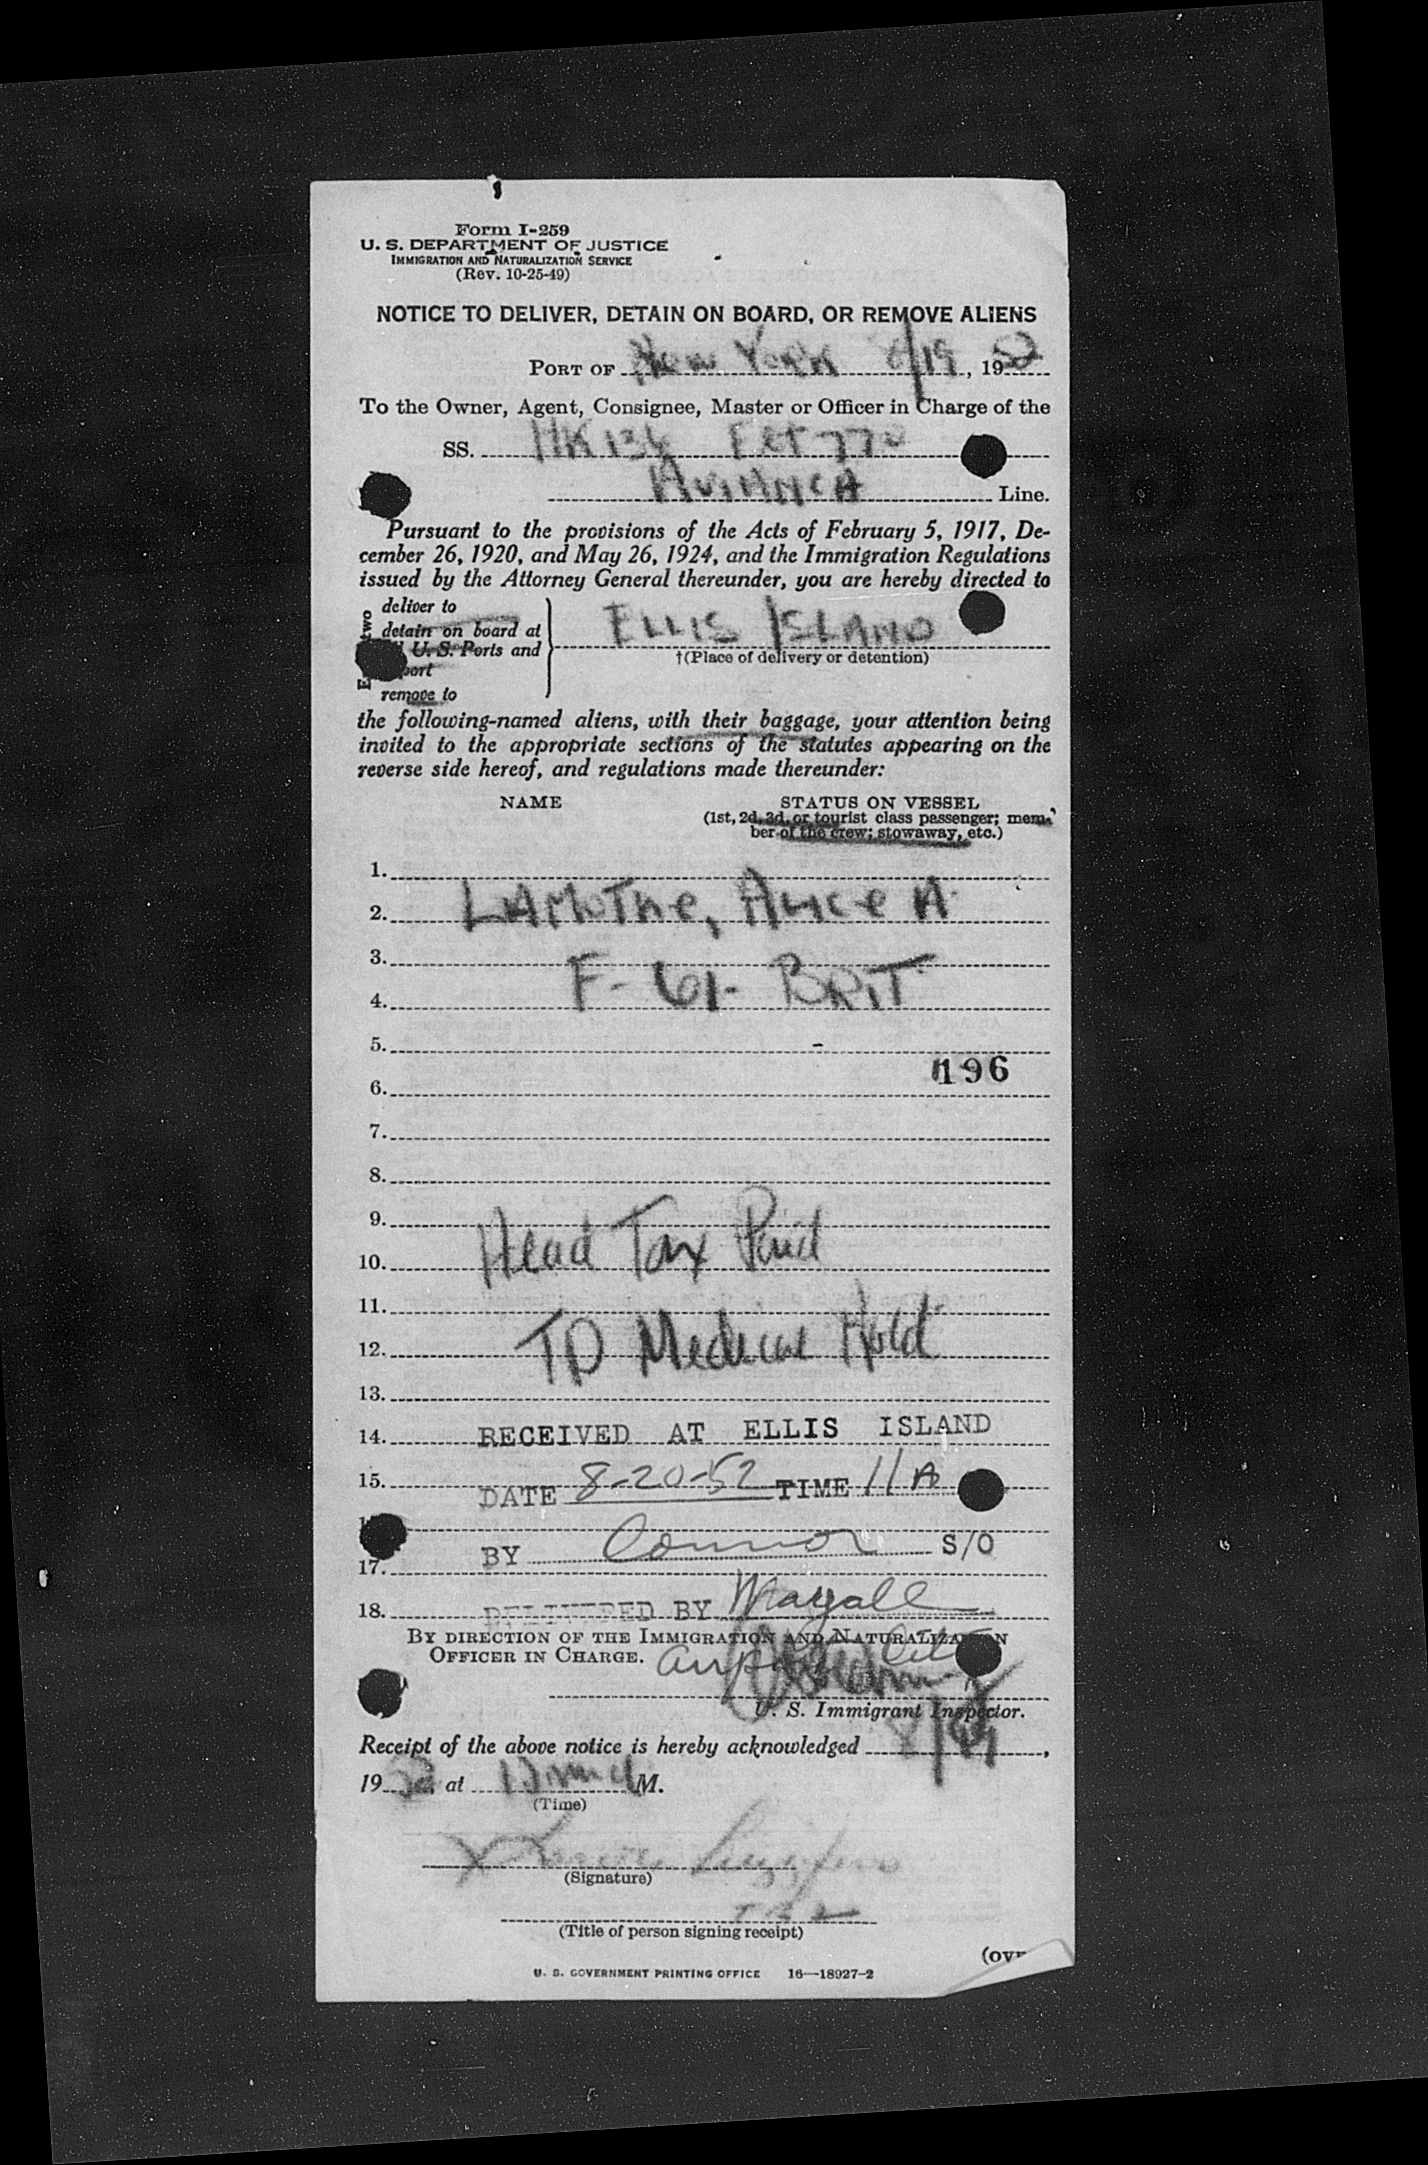 Form I-259
U. S. DEPARTMENT OF JUSTICE
IMMIGRATION AND NATURALIZATION SERVICE
(Rev. 10-25-49)
NOTICE TO DELIVER, DETAIN ON BOARD, OR REMOVE ALIENS
PORT OF New York 8/19, 1952
To the Owner, Agent, Consignee, Master or Officer in Charge of the
SS. HK 136 FLT 770
AVIANCA Line.
Pursuant to the provisions of the Acts of February 5, 1917, De-
cember 26, 1920, and May 26, 1924, and the Immigration Regulations
issued by the Attorney General thereunder, you are hereby directed to
deliver to
detain on board at
U. S. Ports and
remove to
two
ELLIS ISLAND
†(Place of delivery or detention)
the following-named aliens, with their baggage, your attention being
invited to the appropriate sections of the statutes appearing on the
reverse side hereof, and regulations made thereunder:
NAME STATUS ON VESSEL
(1st, 2d, 3d, or tourist class passenger; mem-
ber of the crew; stowaway, etc.)
1.
2. LAMOTHE, ALICE A
3.
4. F- 61- BRIT
5.
196
6.
7.
8.
9.
10. Head Tax Paid
11.
12. TD Medical Hold
13.
14. RECEIVED AT ELLIS ISLAND
15. DATE 8-20-52 TIME 11 A
17. BY Connor S/O
18. DELIVERED BY Mayall
BY DIRECTION OF THE IMMIGRATION AND NATURALIZATION
OFFICER IN CHARGE.
U. S. Immigrant Inspector.
Receipt of the above notice is hereby acknowledged 8/19,
1952 at 12 mid M.
(Time)
X
(Signature)
(Title of person signing receipt)
U. S. GOVERNMENT PRINTING OFFICE 16—18927-2